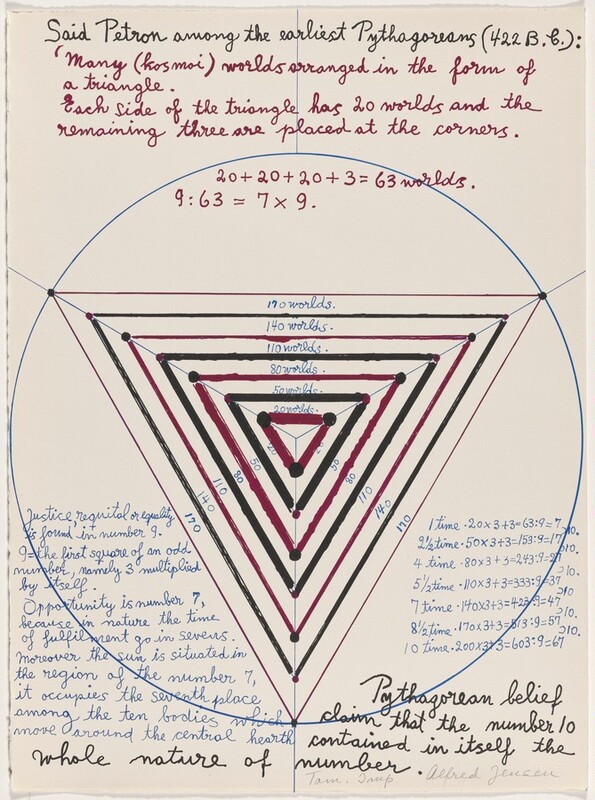 Said Petron among the earliest Pythagoreans (422 B.C.):
"Many (kosmoi) worlds arranged in the form of
a triangle.
Each side of the triangle has 20 worlds and the
remaining three are placed at the corners.
20+20+20+3=63 worlds.
9:63 = 7 x 9.
170 worlds.
140 worlds.
110 worlds.
80 worlds.
50 worlds.
20 worlds.
20
20
50
50
80
80
110
110
140
140
170
170
Justice, requital or equality
is found in number 9.
9-the first square of an odd
number, namely 3 multiplied
by itself.
Opportunity is number 7,
because in nature the time
of fulfilment go in sevens.
Moreover the sun is situated in
the region of the number 7,
it occupies the seventh place
among the ten bodies which
move around the central hearth
1 time · 20x3+3=63:9=7
>10.
2½ time · 50x3+3=153:9=17
>10.
4 time · 80x3+3=243:9=27
>10.
5½ time · 110x3+3=333:9=37
>10.
7 time · 140x3+3=423:9=47
>10.
8½ time · 170x3+3=513:9=57
>10.
10 time · 200x3+3=603:9=67
Pythagorean belief
claim that the number 10
contained in itself the
whole nature of number.
Tam. Imp. Alfred Jensen